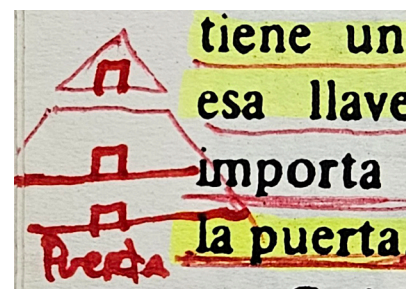 tiene un
esa llave
importa
la puerta
Puerta